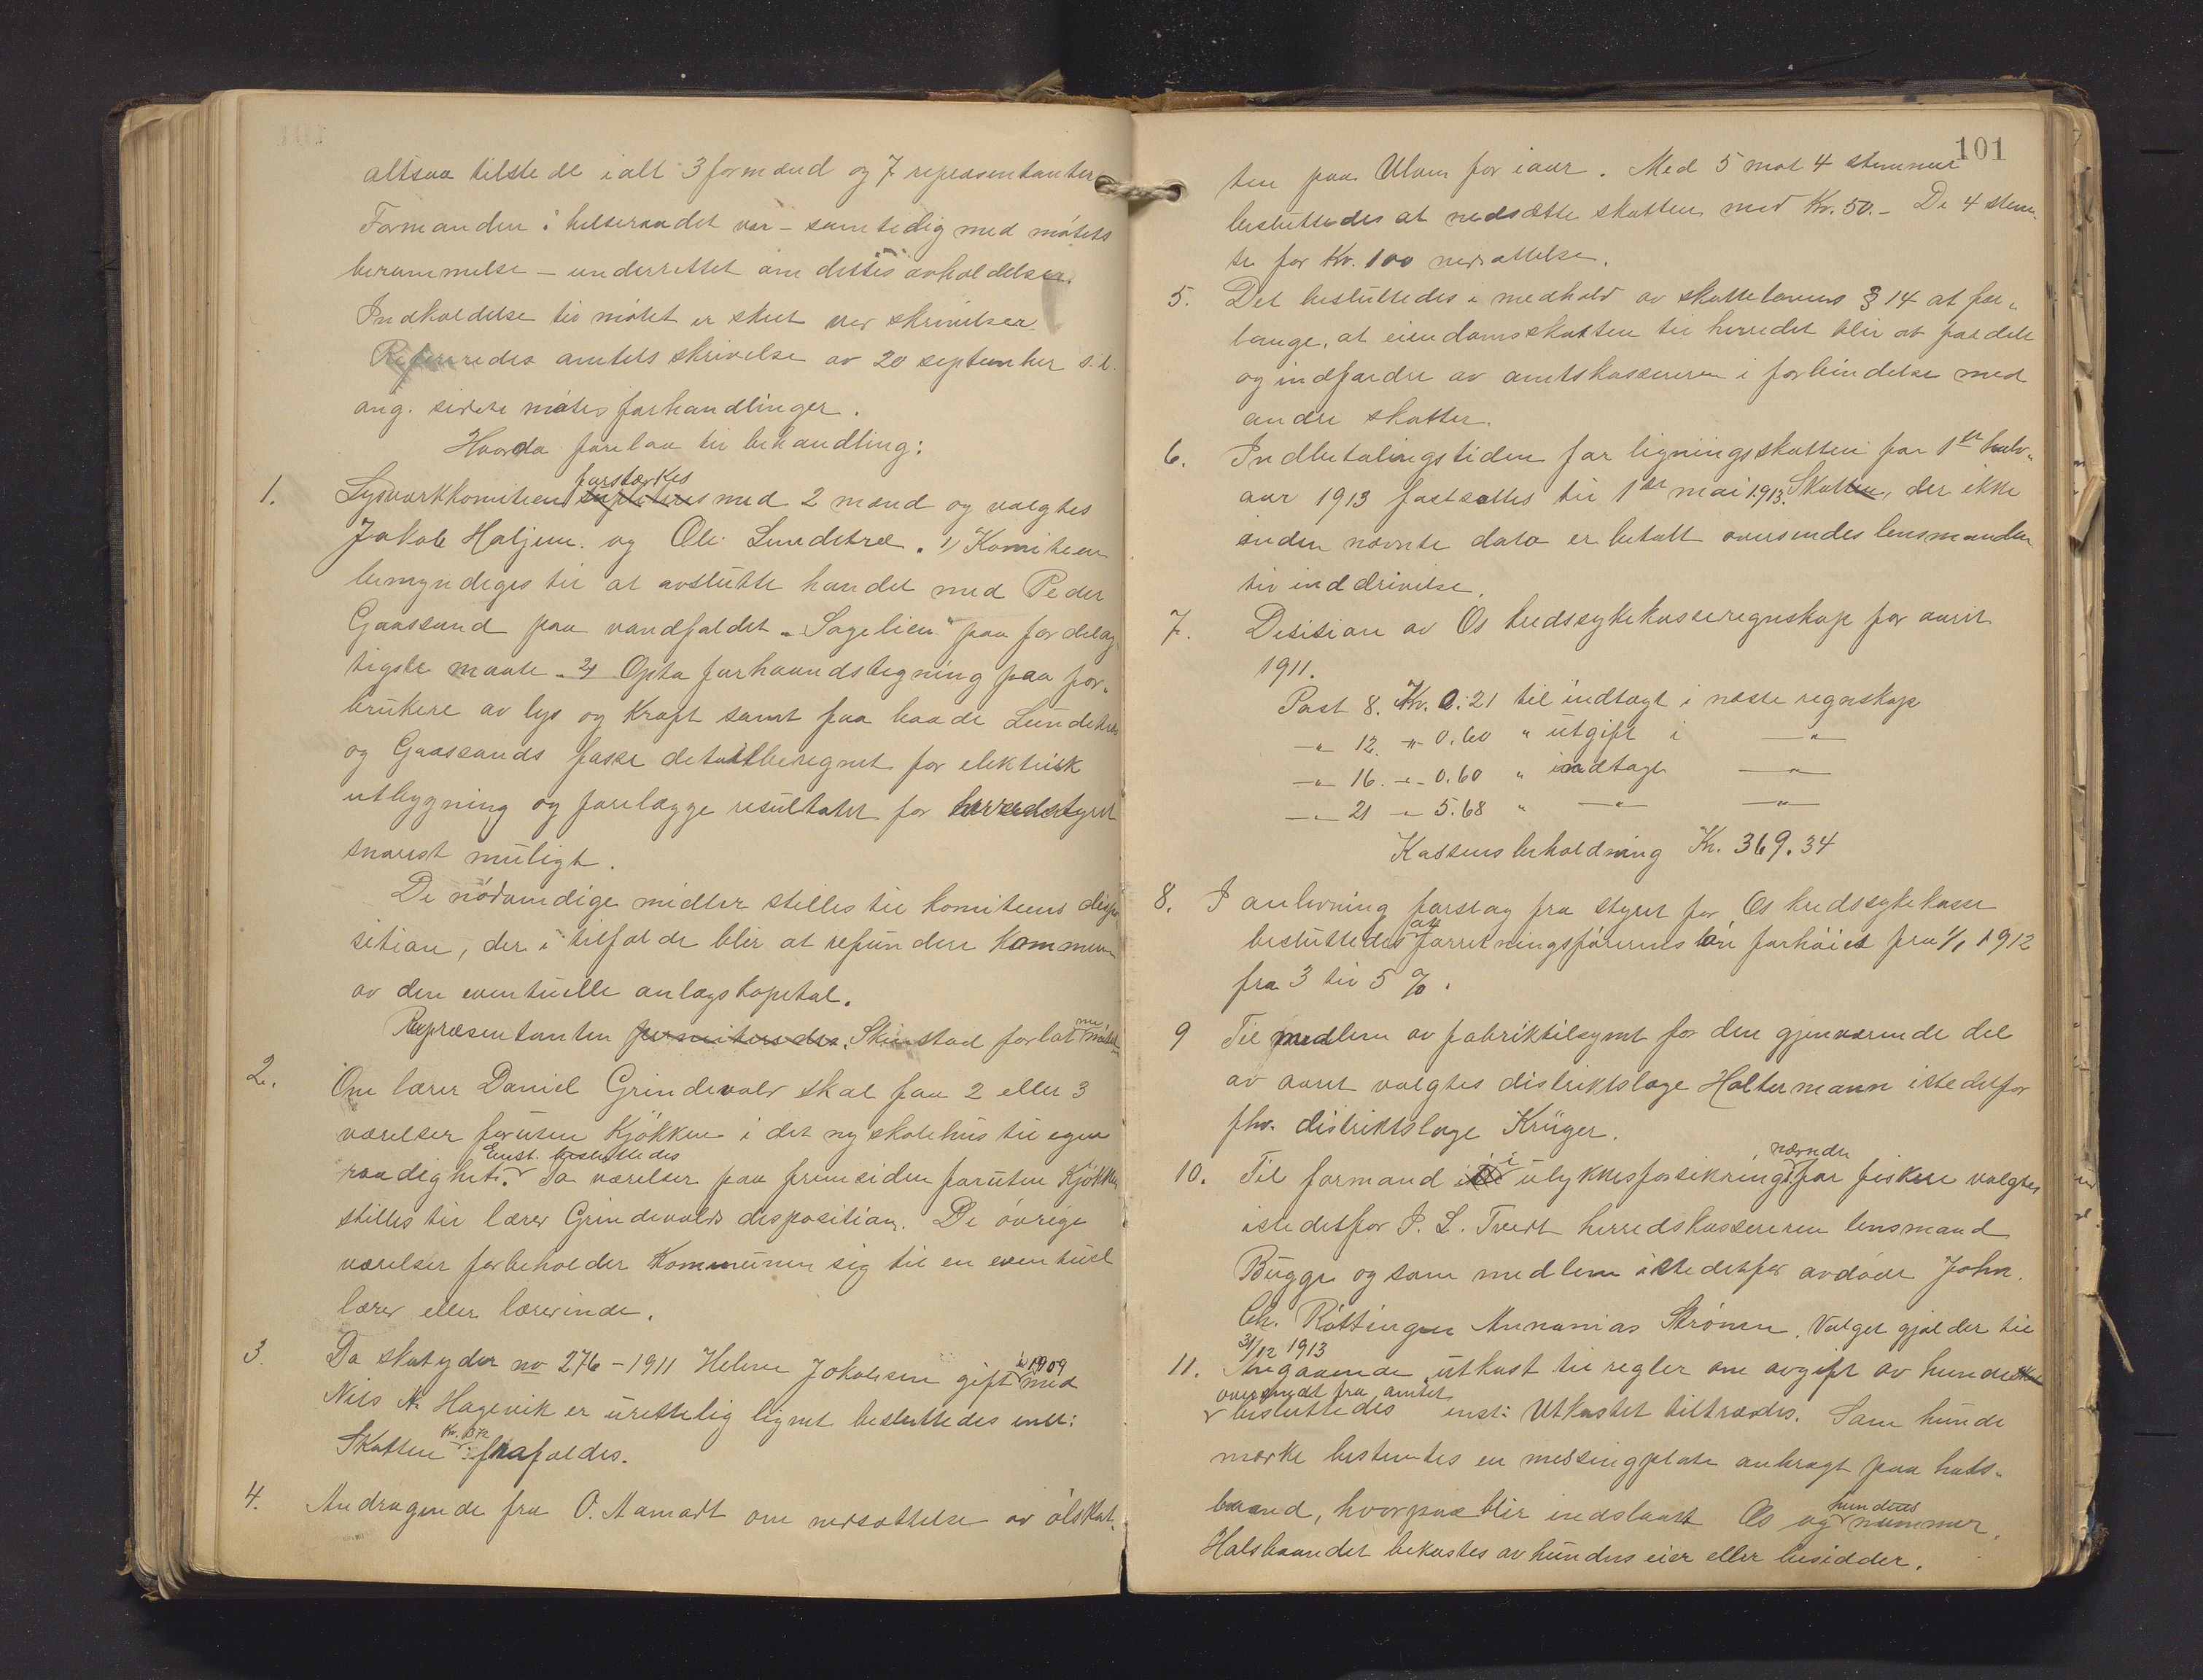 altsaa tilstede ialt 3 formænd og 7 repræsentanter
Formanden i helseraadet var – samtidig med møtets
berammelse – underrettet om dettes avholdelse.
Indkaldelse til møtet er skeet ved skrivelse.
Refereredes amtets skrivelse av 20 september s. l.
ang. sidste møtes forhandlinger.
Hvorda forelaa til behandling:
1. Lysverkkomiteen forstærkes med 2 mænd og valgtes
Jakob Haljem og Ole Lundetræ. 1) Komiteen
bemyndiges til at avslutte handel med Peder
Gaassand paa vandfaldet "Sagelien" paa fordelag-
tigste maate. 2) Opta forhaandstegning paa for-
brukere av lys og kraft samt faa baade Lundetræ
og Gaassands fosse detailberegnet for elektrisk
utbygning og forelægge resultatet for herredstyret
snarest muligt.
De nødvendige midler stilles til komiteens dispo
sition, der i tilfælde blir at refundere kommunen
av den eventuelle anlægskapital.
Repræsentanten permiteredes. Skeinstad forlot nu møtet
2. Om lærer Daniel Grindevold skal faa 2 eller 3
værelser foruten kjøkken i det ny skolehus til egen
raadighet. Enst. besluttedes To værelser paa fremsiden foruten kjøkken
stilles til lærer Grindevolds disposition. De øvrige
værelser forbeholder kommunen sig til en eventuel
lærer eller lærerinde.
3. Da skatyder no 276 – 1911 Helene Jakobsen gift i 1909 med
Nils N. Hagevik er urettelig lignet besluttedes enst:
Skatten frafaldes.
4. Andragende fra O. Aamodt om nedsættelse av ølskat-
101
ten paa Ulven for iaar. Med 5 mot 4 stemmer
besluttedes at nedsætte skatten med Kr. 50.– De 4 stem-
te for Kr. 100 nedsættelse.
5. Det besluttedes i medhold av skattelovens § 14 at for-
lange, at eiendomsskatten til herredet blir at fordele
og indfordre av amtskassereren i forbindelse med
andre skatter.
6. Indbetalingstiden for ligningsskatten for 1ste halv-
aar 1913 fastsættes til 1ste mai 1913. Skatten, der ikke
inden nævnte dato er betalt oversendes lensmanden
til inddrivelse.
7. Desision av Os kredssykekasseregnskap for aaret
1911.
Post 8. Kr. 0.21 til indtægt i næste regnskap
–"– 12 –"– 0.60 " utgift i –"–
–"– 16. –"– 0.60 " indtægt –"–
–"– 21 –"– 5.68 " –"– –"–
Kassens beholdning Kr. 369.34
8. I anledning forslag fra styret for Os kredssykekasse
besluttedes at forretningsførerens løn forhøiet fra 1/1 1912
fra 3 til 5 %.
9 Til medlem av fabriktilsynet for den gjenværende del
av aaret valgtes distriktslæge Haltermann istedetfor
fhv. distriktslæge Krüger.
10. Til formand i ulykkesforsikringsnævnden for fiskere valgtes
istedetfor P. L. Tveit herredskassereren lensmand
Bugge og som medlem istedetfor avdøde John
Chr. Røttingen Annanias Strønen. Valget gjælder til
31/12 1913
11. Angaaende utkast til regler om avgift av hunde
oversendt fra amtet
besluttedes enst: Utkastet tiltrædes. Som hunde
mærke bestemtes en messingplate anbragt paa hals-
baand, hvorpaa blir indslaat Os og hundens nummer.
Halsbaandet bekostes av hundens eier eller besidder.